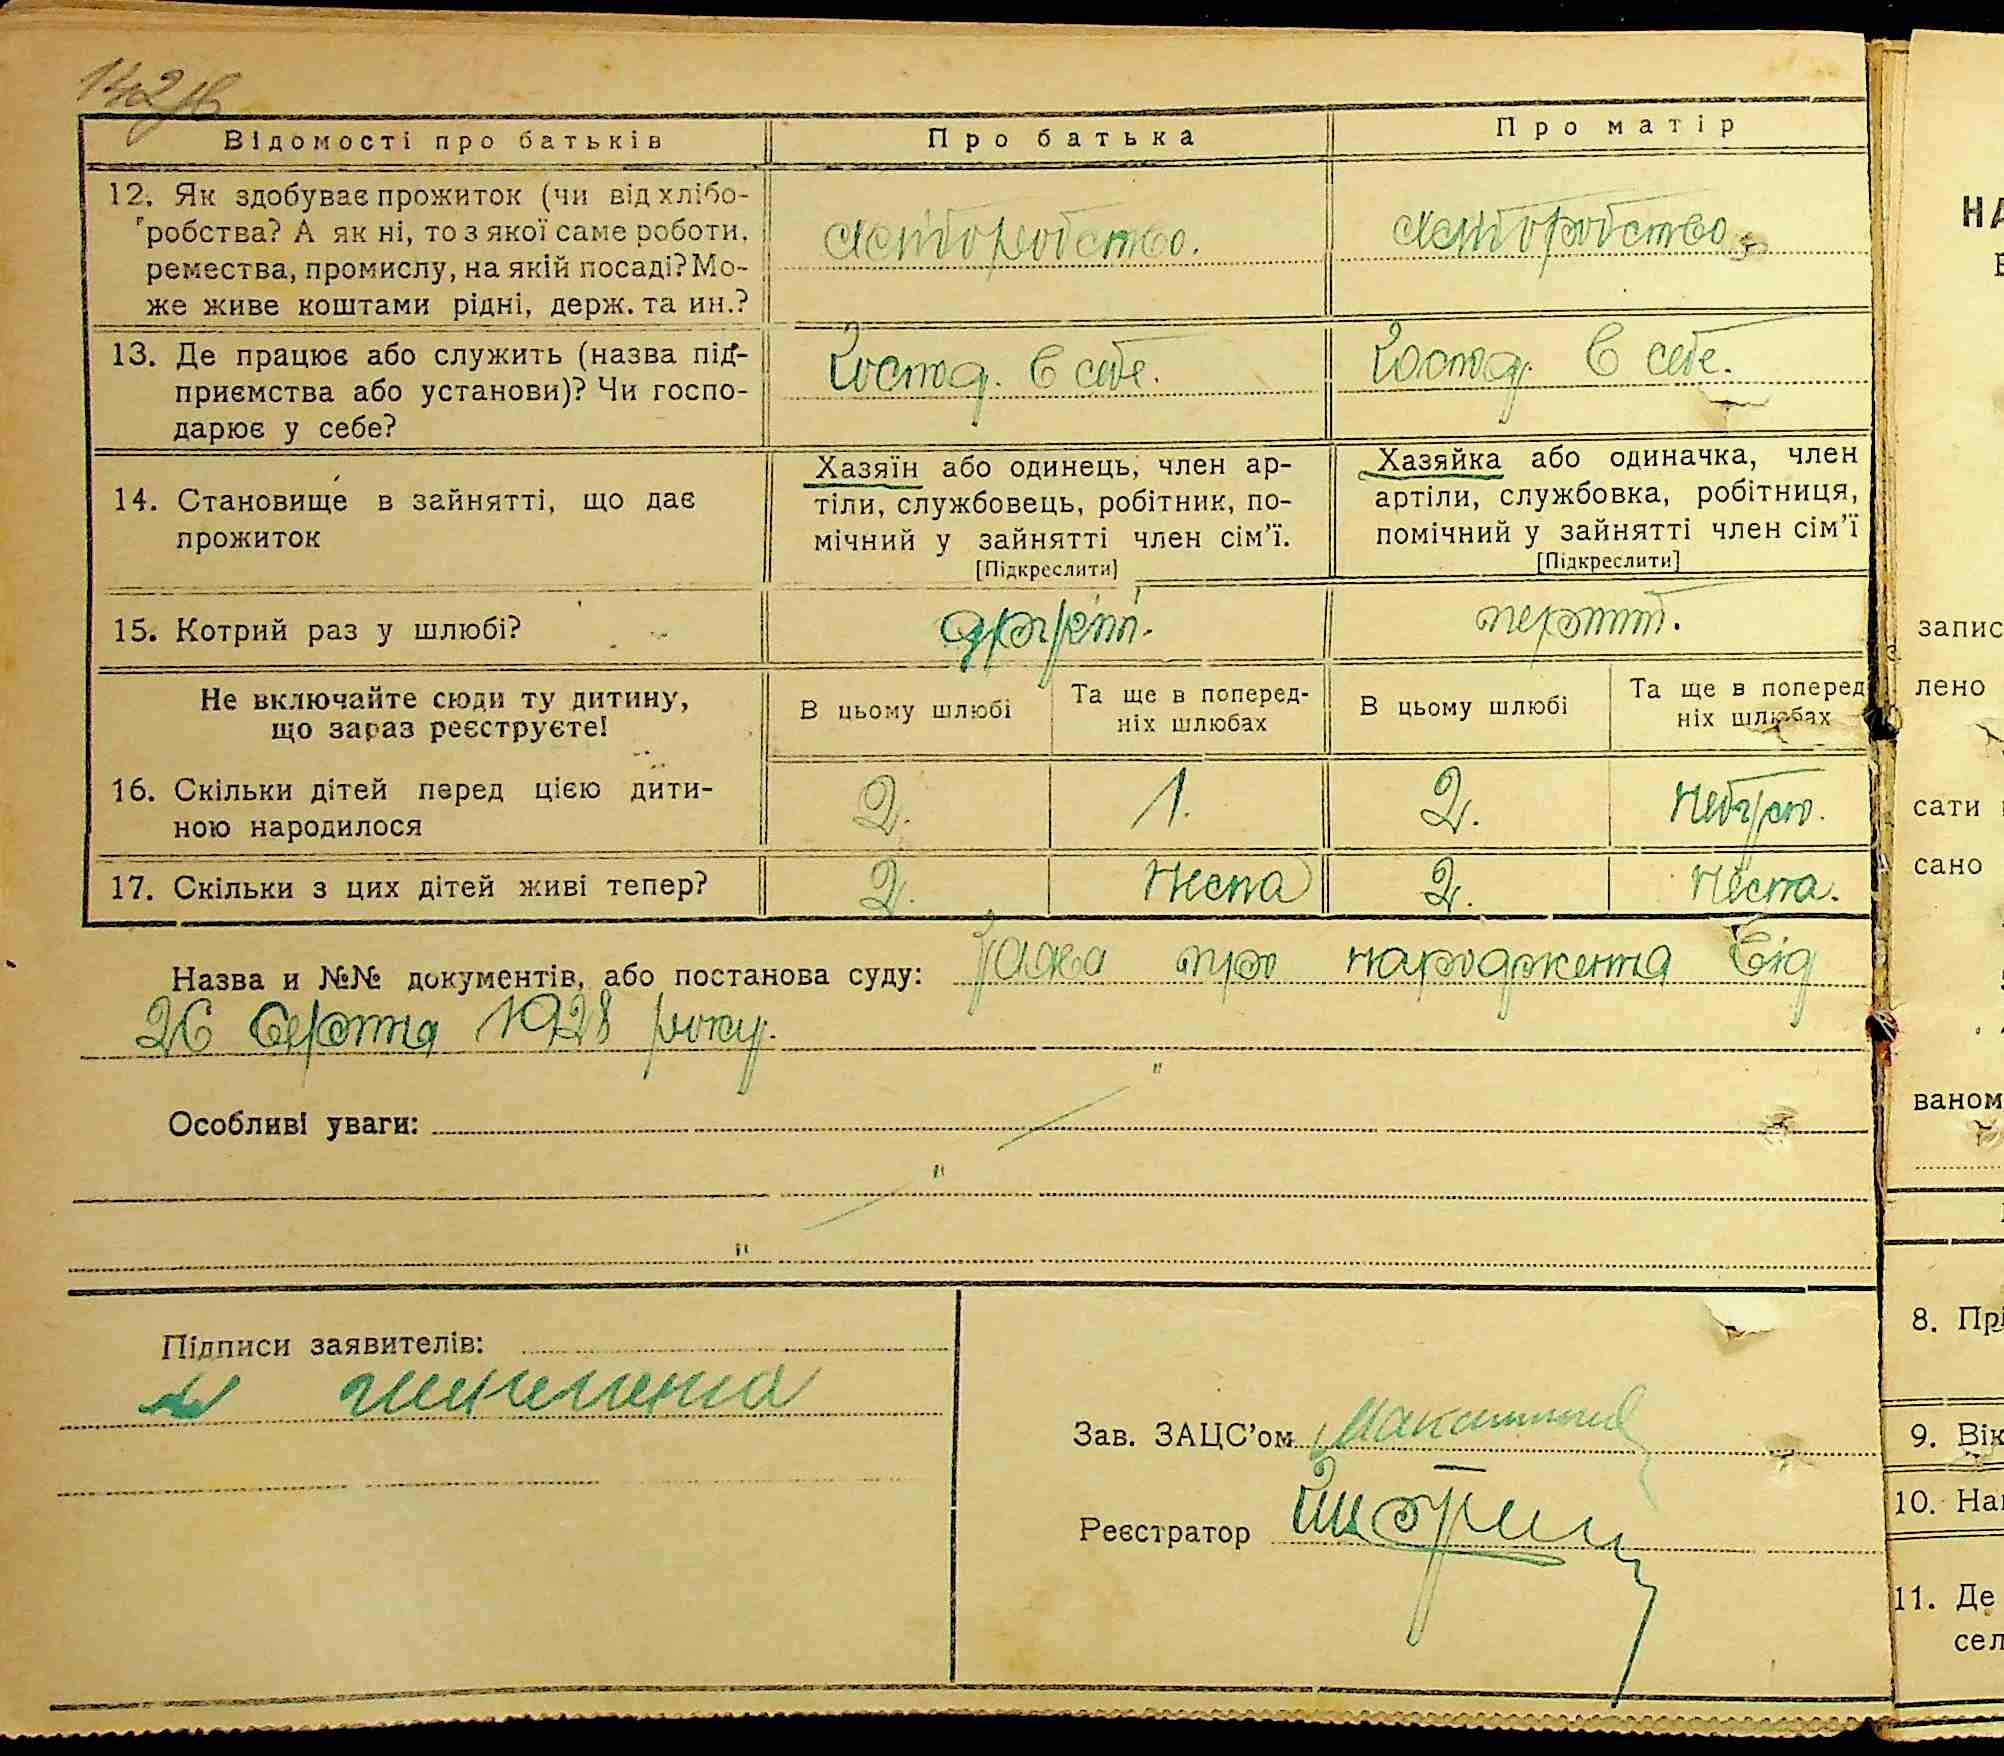 Відомості про батьків
Про батька
Про матір
12. Як здобуває прожиток (чи від хлібо-
робства? А як ні, то з якої саме роботи,
ремества, промислу, на якій посаді? Мо-
же живе коштами рідні, держ. та ин.?
хліборобство.
хліборобство
13. Де працює або служить (назва під-
приємства або установи)? Чи госпо-
дарює у себе?
Господ. в себе.
Господ. в себе.
14. Становище в зайнятті, що дає
прожиток
Хазяїн або одинець, член ар-
тіли, службовець, робітник, по-
мічний у зайнятті член сім'ї.
[Підкреслити]
Хазяйка або одиначка, член
артіли, службовка, робітниця,
помічний у зайнятті член сім'ї
[Підкреслити]
15. Котрий раз у шлюбі?
другий.
перший.
Не включайте сюди ту дитину,
що зараз реєструєте!
В цьому шлюбі
Та ще в поперед-
ніх шлюбах
В цьому шлюбі
Та ще в поперед
ніх шлюбах
16. Скільки дітей перед цією дити-
ною народилося
2.
1.
2.
небуло.
17. Скільки з цих дітей живі тепер?
2.
нема
2.
нема.
Назва и №№ документів, або постанова суду: Заява про народження від
26 серпня 1928 року.
Особливі уваги:
Підписи заявителів:
Зав. ЗАЦС'ом
Реєстратор
НА
запис
лено
сати
сано
ваном
8. Прі
9. Вік
10. На
11. Де
сел